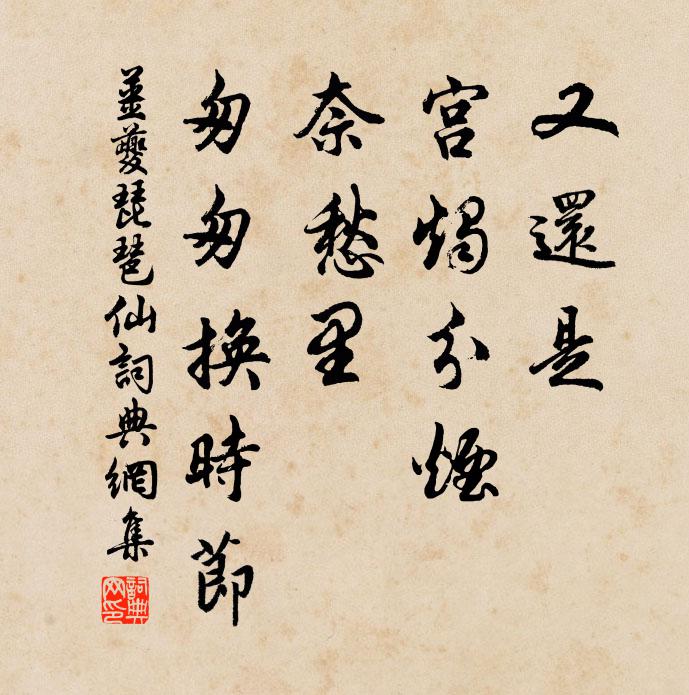 又還是
宮燭分煙
奈愁里
匆匆換時節
姜夔琵琶仙詞典網集
詞典網印